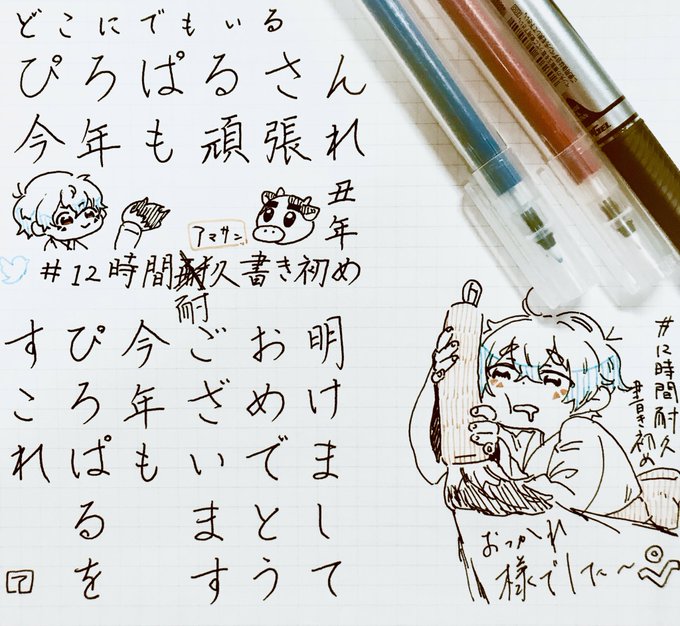 どこにでもいる
ぴろぱるさん
今年も頑張れ
丑年
アマサン
#12時間耐久書き初め
明けまして
おめでとう
ございます
今年も
ぴろぱるを
すこれ
ア
#12時間耐久
書き初め
おつかれ
様でした～